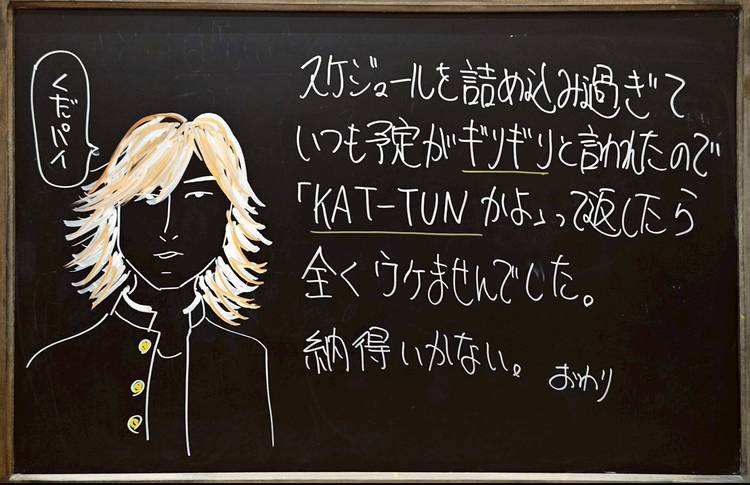 くだパイ
スケジュールを詰め込み過ぎて
いつも予定がギリギリと言われたので
「KAT-TUNかよ」って返したら
全くウケませんでした。
納得いかない。
おわり